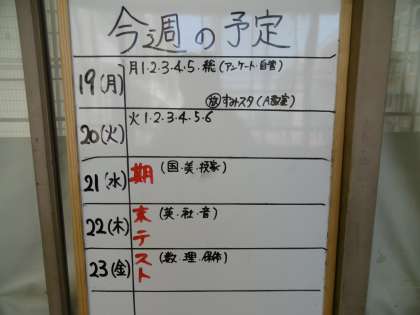 今週の予定
19(月) 月1·2·3·4·5·総(アンケート·自習)
放 すみスタ(A教室)
20(火) 火1·2·3·4·5·6
21(水) 期 (国·美·技家)
22(木) 末 (英·社·音)
テ
23(金) スト (数·理·保体)